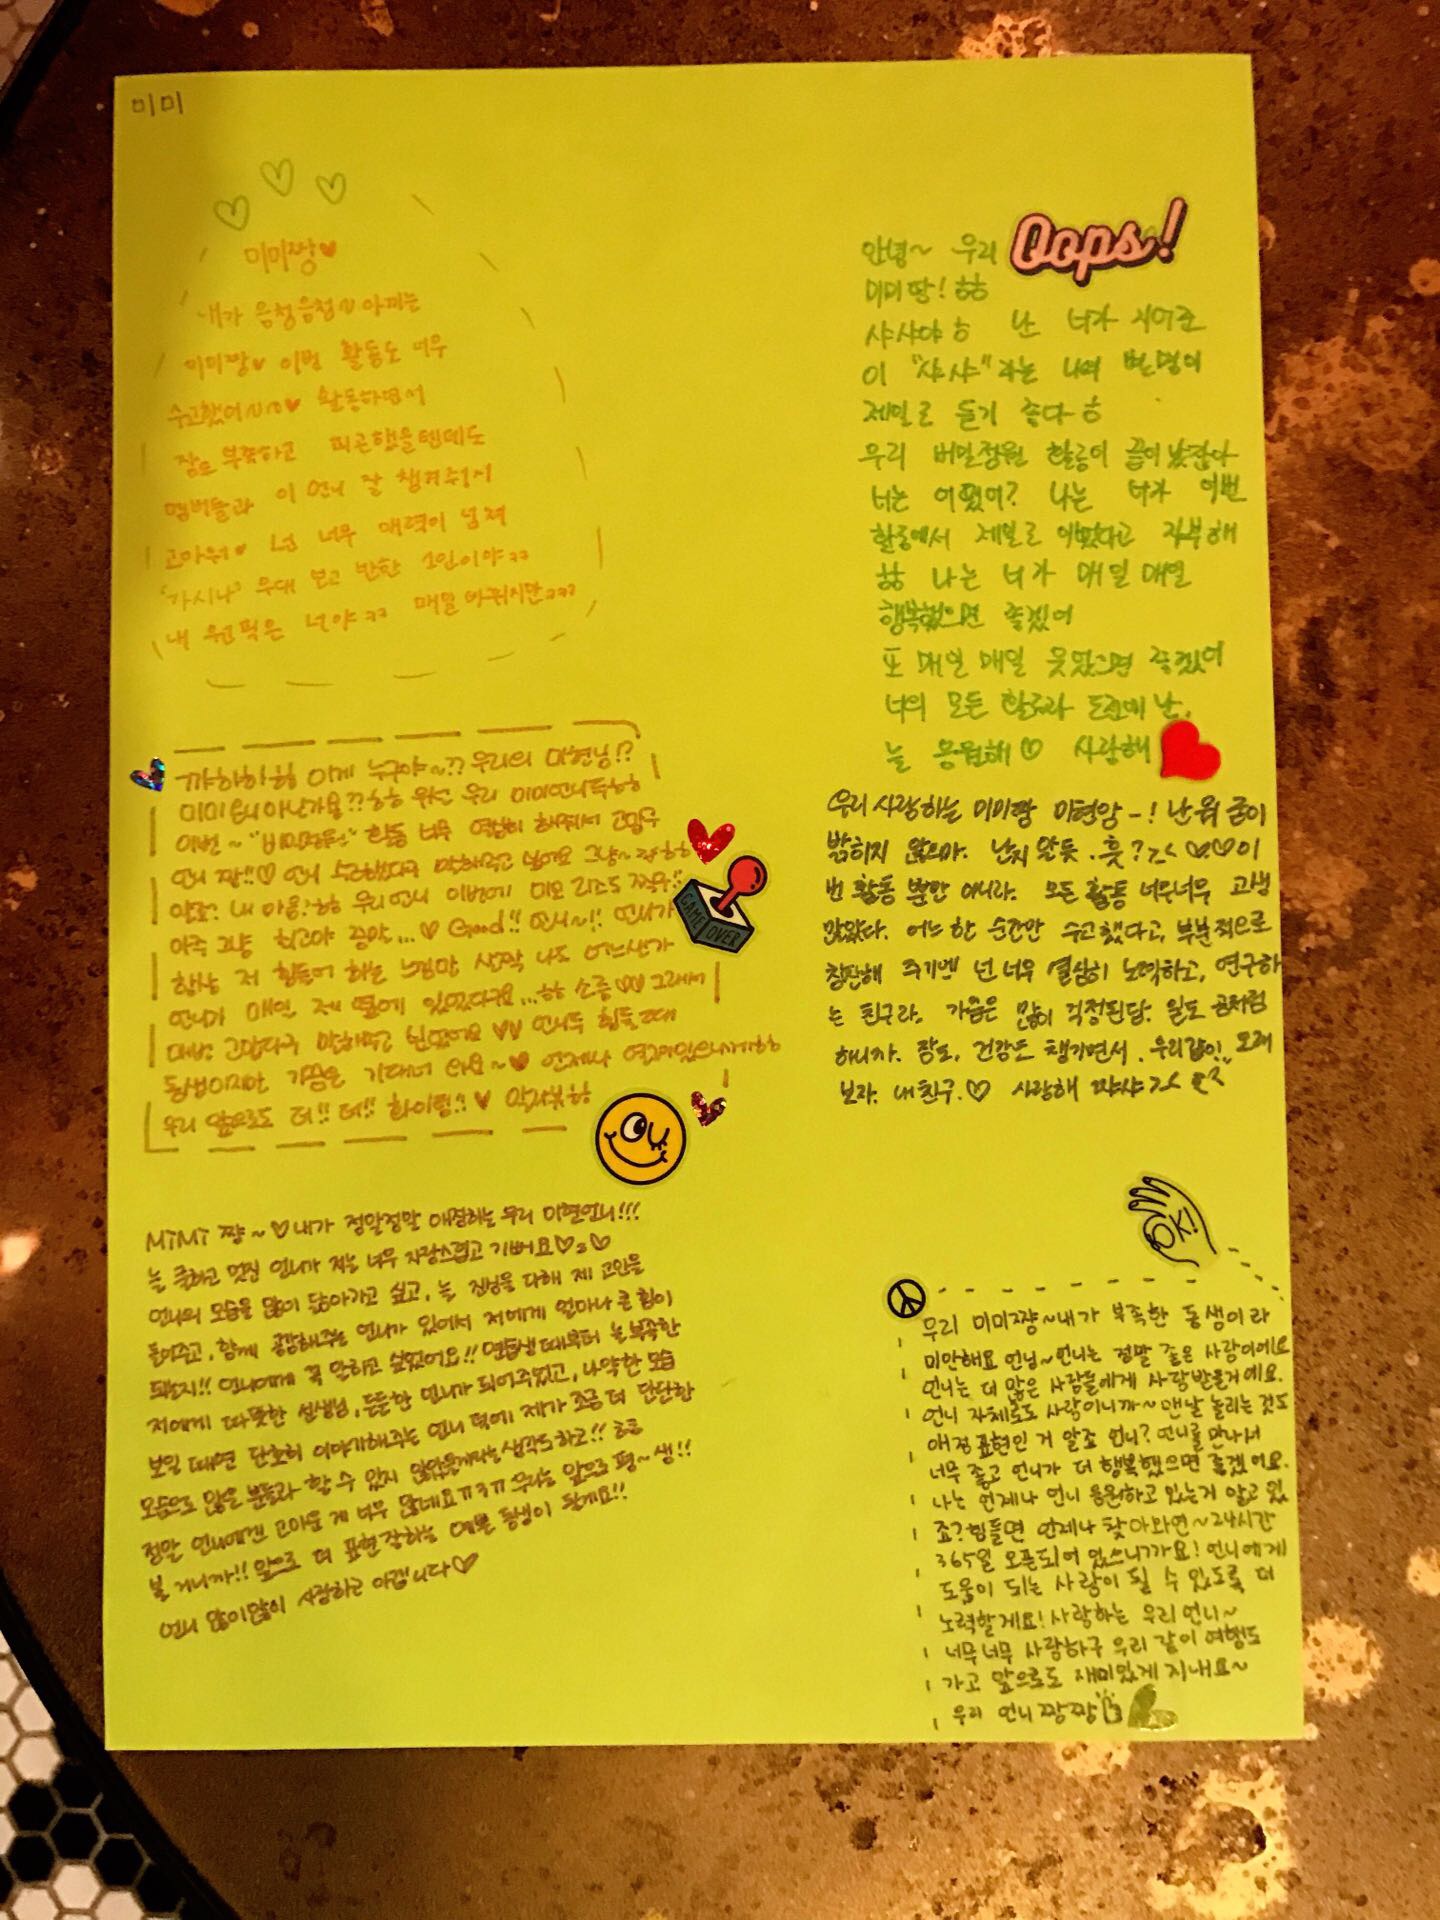 미미
미미짱♥
내가 음청음청~아끼는
미미짱♥ 이번 활동도 너무
수고했어~~♥ 활동하면서
잠도 부족하고 피곤했을텐데도
멤버들과 이 언니 잘 챙겨주어서
고마워♥ 넌 너무 매력이 넘쳐
'가시나' 무대 보고 반한 1인이야ㅋㅋ
내 원픽은 너야ㅋㅋ 매일 바뀌지만ㅋㅋㅋ
안녕~ 우리
Oops!
미미땅! ㅎㅎ
샤샤야ㅎ 난 너가 지어준
이 "샤샤"라는 나의 별명이
제일로 듣기 좋다ㅎ
우리 비밀정원 활동이 끝이났잖아
너는 어땠어? 나는 너가 이번
활동에서 제일로 예뻤다고 자부해
ㅎㅎ 나는 너가 매일 매일
행복했으면 좋겠어
또 매일 매일 웃었으면 좋겠어
너의 모든 활동과 도전에 난,
늘 응원해♡ 사랑해
꺄하하하 이게 누구야~?? 우리의 미현님!?
미미언니아닌가요??ㅎㅎ 우선 우리 미미언니두ㅎㅎ
이번~ "비밀정원" 활동 너무 열심히 해줘서 고마우
언니 짱!!♡ 언니 수고했다구 말해주고 싶어요 그냥~
알죠? 내 마음?ㅎㅎ 우리언니 이번에
아주 그냥 최고야 증말...♡ Good!! 언니~!! 언니가
항상 저 힘들어 하는 느낌만 살짝 나도 어느샌가
언니가 매일 제 옆에 있었다구요...ㅎㅎ 소름♡♡ 그래서
매번 고맙다구 말해주고 싶었어요♡♡ 언니두 힘들 때
동생이지만 가끔은 기대러 와요~♥ 언제나 열려있으니까ㅎㅎ
우리 앞으로도 더!! 더!! 화이팅!!♥
GAME OVER
우리 사랑하는 미미짱 미현양-! 난 뭐 굳이
밝히지 않으마. 난지 알듯. 흣? >< ♡♡이
번 활동 뿐만 아니라. 모든 활동 너무너무 고생
많았다. 어느 한 순간만 수고했다고, 부분적으로
칭찬해 주기엔 넌 너무 열심히 노력하고, 연구하
는 친구라. 가끔은 많이 걱정된담. 일도 곰처럼
하니까. 잠도, 건강도 챙기면서. 우리같이.. 오래
보자. 내 친구.♡ 사랑해 쨔샤><
MiMi 쨩~♡내가 정말정말 애정하는 우리 미현언니!!!
늘 쿨하고 멋진 언니가 저는 너무 자랑스럽고 기뻐요♡3♡
언니의 모습을 많이 닮아가고 싶고, 늘 진심을 다해 제 고민을
들어주고, 함께 공감해주는 언니가 있어서 저에게 얼마나 큰 힘이
되는지!! 언니에게 꼭 말하고 싶었어요!! 연습생 때부터 늘 부족한
저에게 따뜻한 선생님, 든든한 언니가 되어주었고, 나약한 모습
보일 때면 단호히 이야기해주는 언니 덕에 제가 조금 더 단단한
모습으로 많은 분들과 할 수 있지 않았을까라는 생각도 하고!! 흐흐
정말 언니에겐 고마운 게 너무 많네요ㅠ3ㅠ 우리는 앞으로 평~생!!
볼 거니까!! 앞으로 더 표현 잘하는 예쁜 동생이 될게요!!
언니 많이많이 사랑하고 아낍니다♡
OK!
우리 미미쨩~내가 부족한 동생이라
미안해요 언님~언니는 정말 좋은 사람이에요
언니는 더 많은 사람들에게 사랑받을거예요.
언니 자체로도 사랑이니까~맨날 놀리는것도
애정표현인 거 알죠 언니? 언니를 만나서
너무 좋고 언니가 더 행복했으면 좋겠어요.
나는 언제나 언니 응원하고 있는거 알고 있
죠? 힘들면 언제나 찾아와연~24시간
365일 오픈되어 있으니까요! 언니에게
도움이 되는 사람이 될 수 있도록 더
노력할게요! 사랑하는 우리 언니~
너무너무 사랑하구 우리 같이 여행도
가고 앞으로도 재미있게 지내요~
우리 언니 짱짱